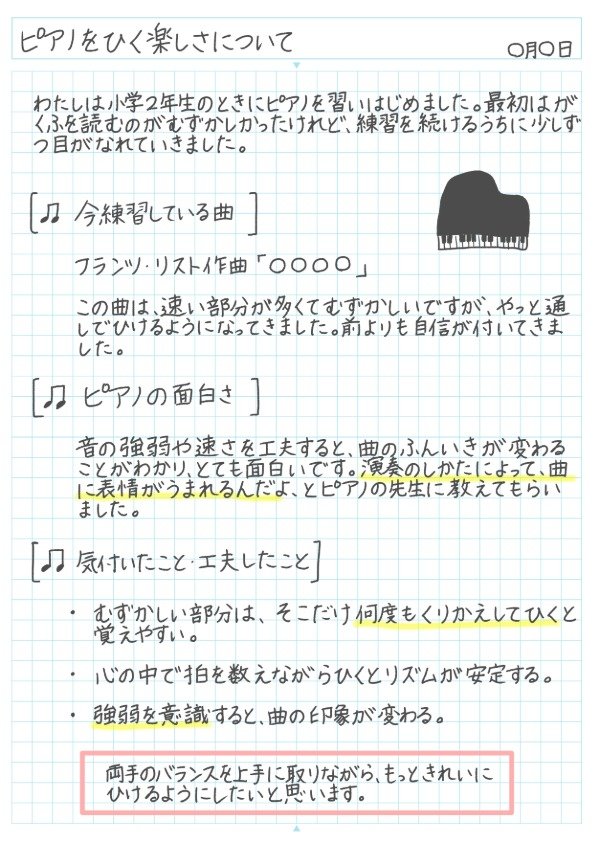 ピアノをひく楽しさについて
〇月〇日
わたしは小学2年生のときにピアノを習いはじめました。最初はが
くふを読むのがむずかしかったけれど、練習を続けるうちに少しず
つ目がなれていきました。
[♫ 今練習している曲 ]
フランツ・リスト作曲「〇〇〇〇」
この曲は、速い部分が多くてむずかしいですが、やっと通
しでひけるようになってきました。前よりも自信が付いてきま
した。
[♫ ピアノの面白さ ]
音の強弱や速さを工夫すると、曲のふんいきが変わる
ことがわかり、とても面白いです。演奏のしかたによって、曲
に表情がうまれるんだよ、とピアノの先生に教えてもらい
ました。
[♫ 気付いたこと・工夫したこと]
・ むずかしい部分は、そこだけ何度もくりかえしてひくと
覚えやすい。
・ 心の中で拍を数えながらひくとリズムが安定する。
・ 強弱を意識すると、曲の印象が変わる。
両手のバランスを上手に取りながら、もっときれいに
ひけるようにしたいと思います。